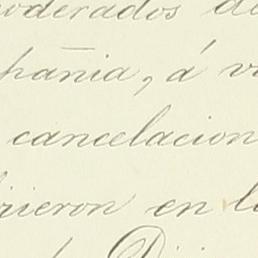 oderados de
pañia, á v
cancelacion
rieron en l
Di